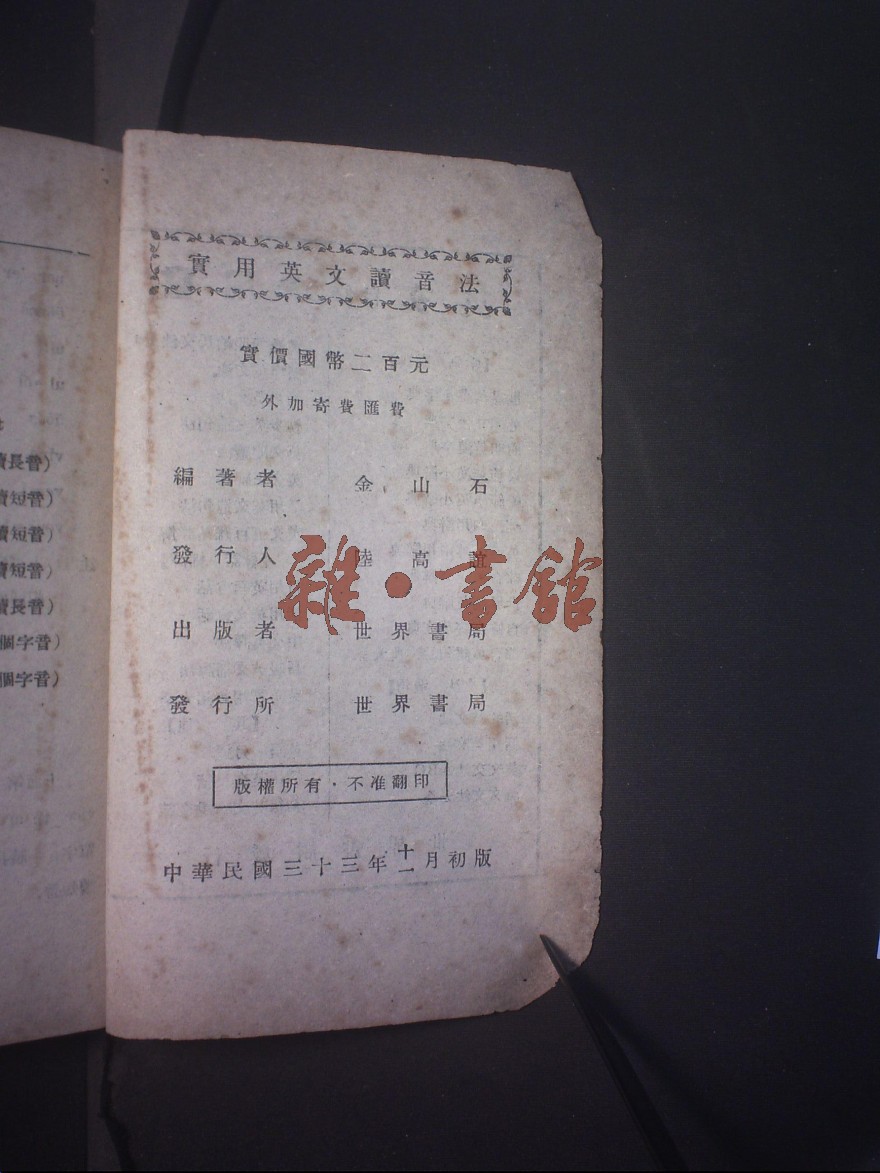 實用英文讀音法
實價國幣二百元
外加寄費匯費
編著者 金山石
發行人 陸高誼
出版者 世界書局
發行所 世界書局
版權所有·不准翻印
中華民國三十三年十一月初版
雜·書館
讀長音)
讀短音)
讀短音)
讀短音)
讀長音)
個字音)
個字音)